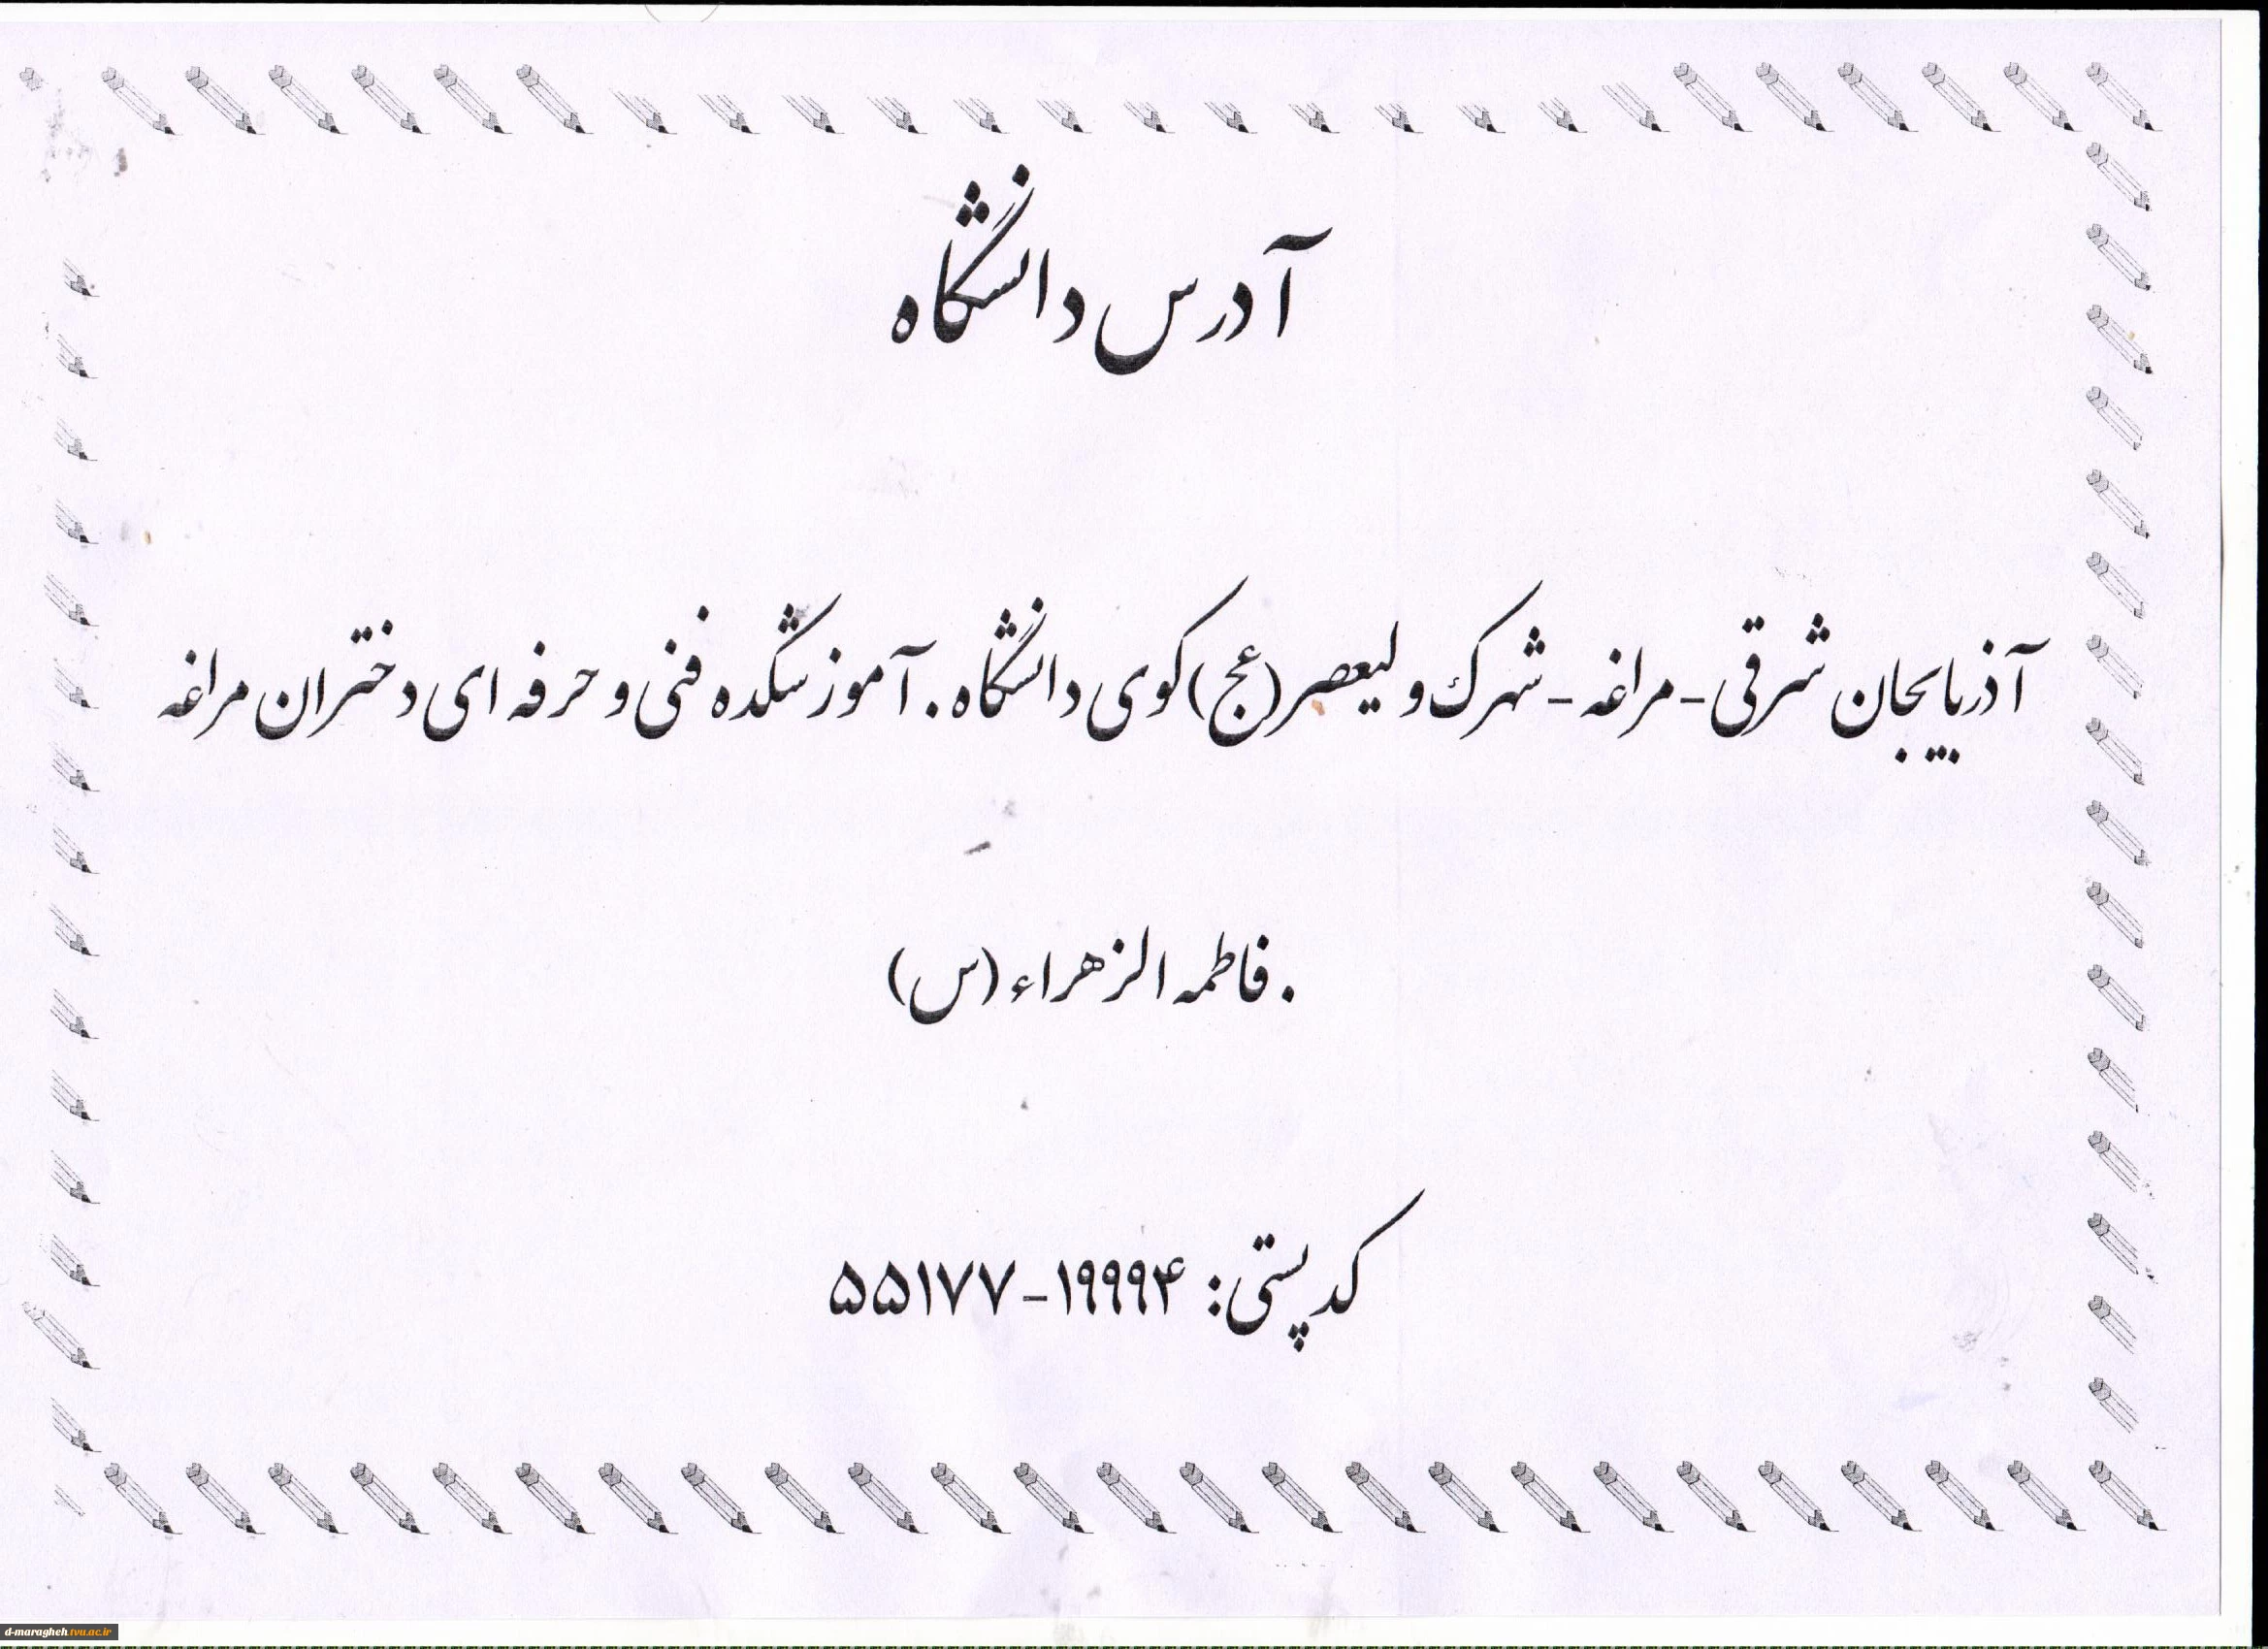 آدرس دانشگاه
آذربایجان شرقی - مراغه - شهرک ولیعصر (عج) کوی دانشگاه . آموزشکده فنی و حرفه ای دختران مراغه
. فاطمه الزهراء (س)
کد پستی: ۱۹۹۹۴-۵۵۱۷۷
d-maragheh.tvu.ac.ir